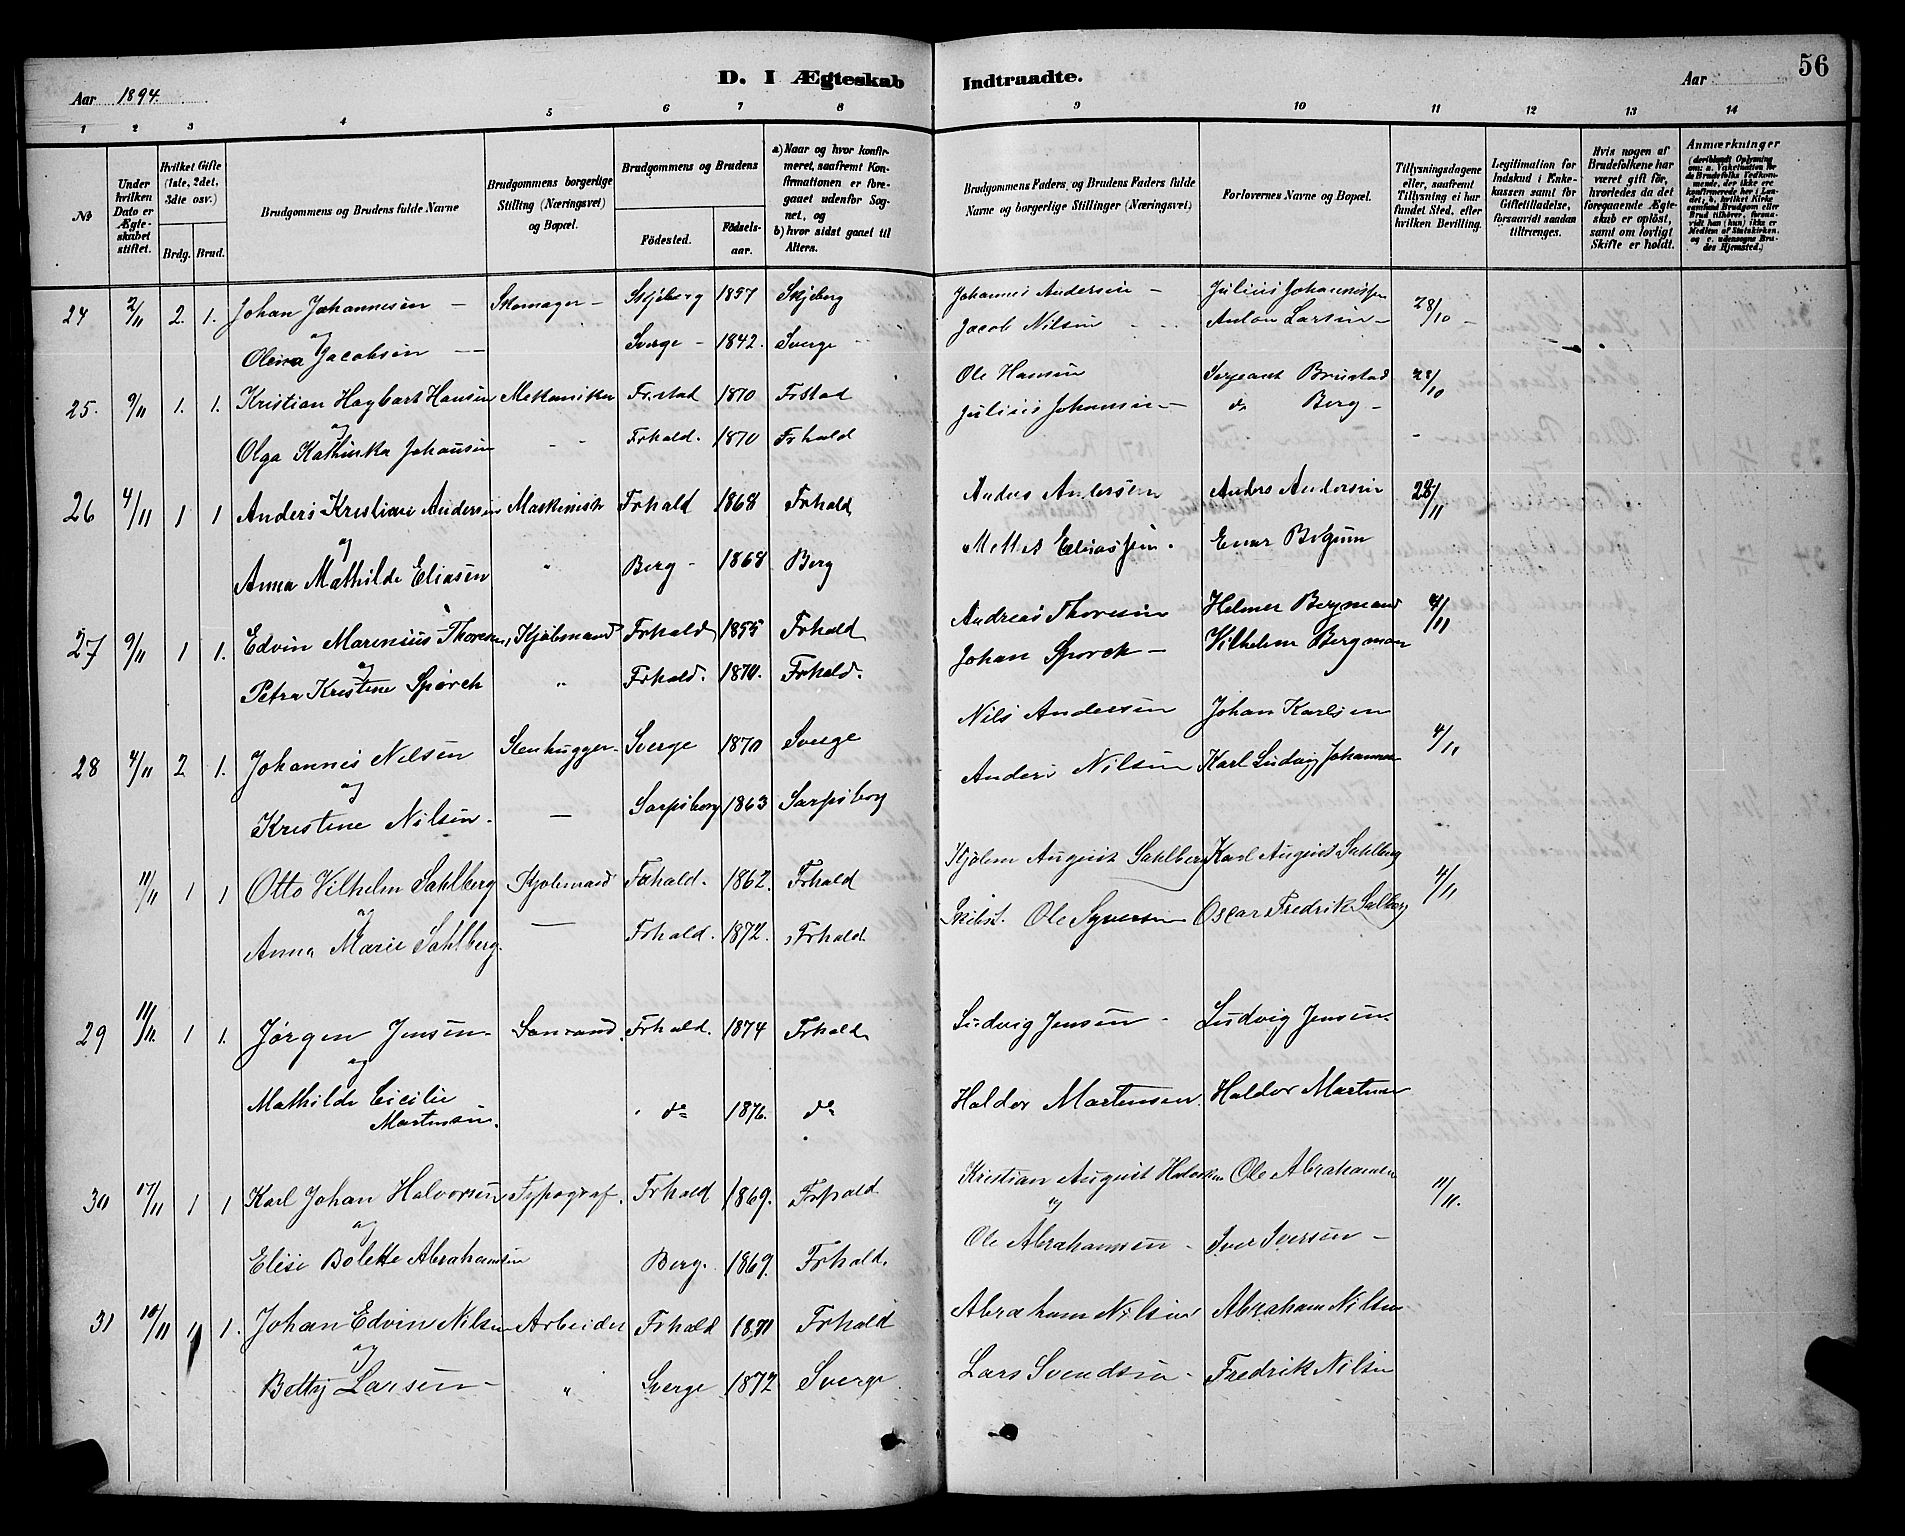 Aar 1894.
D. I Ægteskab Indtraadte.
Aar
56
1 2 3 4 5 6 7 8 9 10 11 12 13 14
№
Under hvilken Dato er Ægteskabet stiftet.
Hvilket Gifte (1ste, 2det, 3die osv.)
Brdg. Brud.
Brudgommens og Brudens fulde Navne
Brudgommens borgerlige Stilling (Næringsvei) og Bopæl.
Brudgommens og Brudens
Födested.
Födsels-aar.
a) Naar og hvor konfirmeret, saafremt Konfirmationen er foregaaet udenfor Sognet, og
b) hvor sidst gaaet til Alters.
Brudgommens Faders, og Brudens Faders fulde Navne og borgerlige Stillinger (Næringsvei)
Forlovernes Navne og Bopæl.
Tillysningsdagene eller, saafremt Tillysning ei har fundet Sted, efter hvilken Bevilling.
Legitimation for Indskud i Enkekassen samt for Giftetilladelse, forsaavidt saadan tiltrænges.
Hvis nogen af Brudefolkene har været gift för, hvorledes da det foregaaende Ægteskab er oplöst, samt om lovligt Skifte er holdt.
Anmærkninger
24 2/11 2. 1. Johan Johannesen Skomager Skjeberg 1857 Skjeberg Johannes Andersen Julius Johannessen 28/10
og
Olena Jacobsen Sverge 1842. Sverge Jacob Nilsen Anton Larsen
25. 9/11 1. 1. Kristian Hagbart Hansen Mekaniker Fr.stad 1870 Frstad Ole Hansen Sergeant Brustad 28/10
og
Olga Kathinka Johansen Frhald. 1870 Frhald Julius Johansen do Berg
26 4/11 1 1 Anders Kristian Andersen Maskinist Frhald 1868 Frhald Anders Andersen Anders Andersen
og
Anna Mathilde Eliasen " Berg 1868 Berg Eliassen Bigum
27 9/11 1 1. Edvin Marenius Thoresen Kjøbmand Frhald 1855 Frhald Andreas Thoresen Helmer Bergmand 4/11
og
Petra Kristine Spørck " Frhald. 1870. Frhald. Johan Spørck Vilhelm Bergman
28 4/11 2 1. Johannes Nilsen Stenhugger Sverge 1870 Sverge Nils Andersen Johan Karlsen 4/11
og
Kristine Nilsen. Sarpsborg 1863 Sarpsborg Anders Nilsen Karl Ludvig Johannesen
11/11 1 1 Otto Vilhelm Sahlberg Kjøbmand Frhald. 1862. Frhald August Sahlberg Karl August Sahlberg 4/11
og
Anna Marie Sahlberg. Frhald. 1872. Frhald. Skibst. Ole Syversen Oscar Fredrik Salberg
29 11/11. 1 1. Jørgen Jensen Frhald. 1874 Frhald Ludvig Jensen Ludvig Jensen
og
Mathilde Cicilie
Martensen. do 1876. do Haldor Martensen. Haldor Martensen
30 17/11 1 1 Karl Johan Halvorsen Typograf. Frhald 1869. Frhald Kristian August Halvorsen Ole Abrahamsen 11/11.
og og
Elise Bolette Abrahamsen Berg. 1869. Frhald. Ole Abrahamsen Iver Iversen
31 10/11 1 1. Johan Edvin Nilsen Arbeider Frhald 1871 Frhald Abraham Nilsen Abraham Nilsen
og
Betty Larsen " Sverge 1872 Sverge Lars Svendsen Fredrik Nilsen